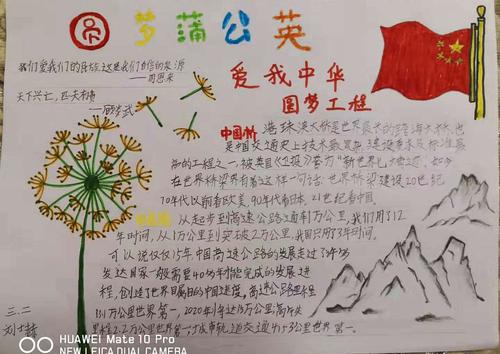 圆梦蒲公英
我们爱我们的民族,这是我们自信的泉源
——周恩来
天下兴亡,匹夫有责
——顾炎武
爱我中华
圆梦工程
中国桥 港珠澳大桥是世界最长的跨海大桥,也
是中国交通史上技术最复杂,建设要求及标准最
高的工程之一,被英国《卫报》誉为"新世界七大奇迹",如今
在世界桥梁界有着这样一句话:世界桥梁建设20世纪
70年代以前看欧美,90年代看日本,21世纪看中国.
从起步到高速公路通车1万公里,我们用了12
年时间,从1万公里到突破2万公里,我国只用了3年时间,
可以说仅仅15年中国高速公路的发展走过了许多
发达国家一般需要40多年才能完成的发展进
程,创造了世界瞩目的中国速度,高速公路里程
万公里世界第一,2020年1年达15万公里高铁
里程2.2万公里世界第一,城市轨道交通4153公里世界第一.
三.二
HUAWEI Mate 10 Pro
NEW LEICA DUAL CAMERA